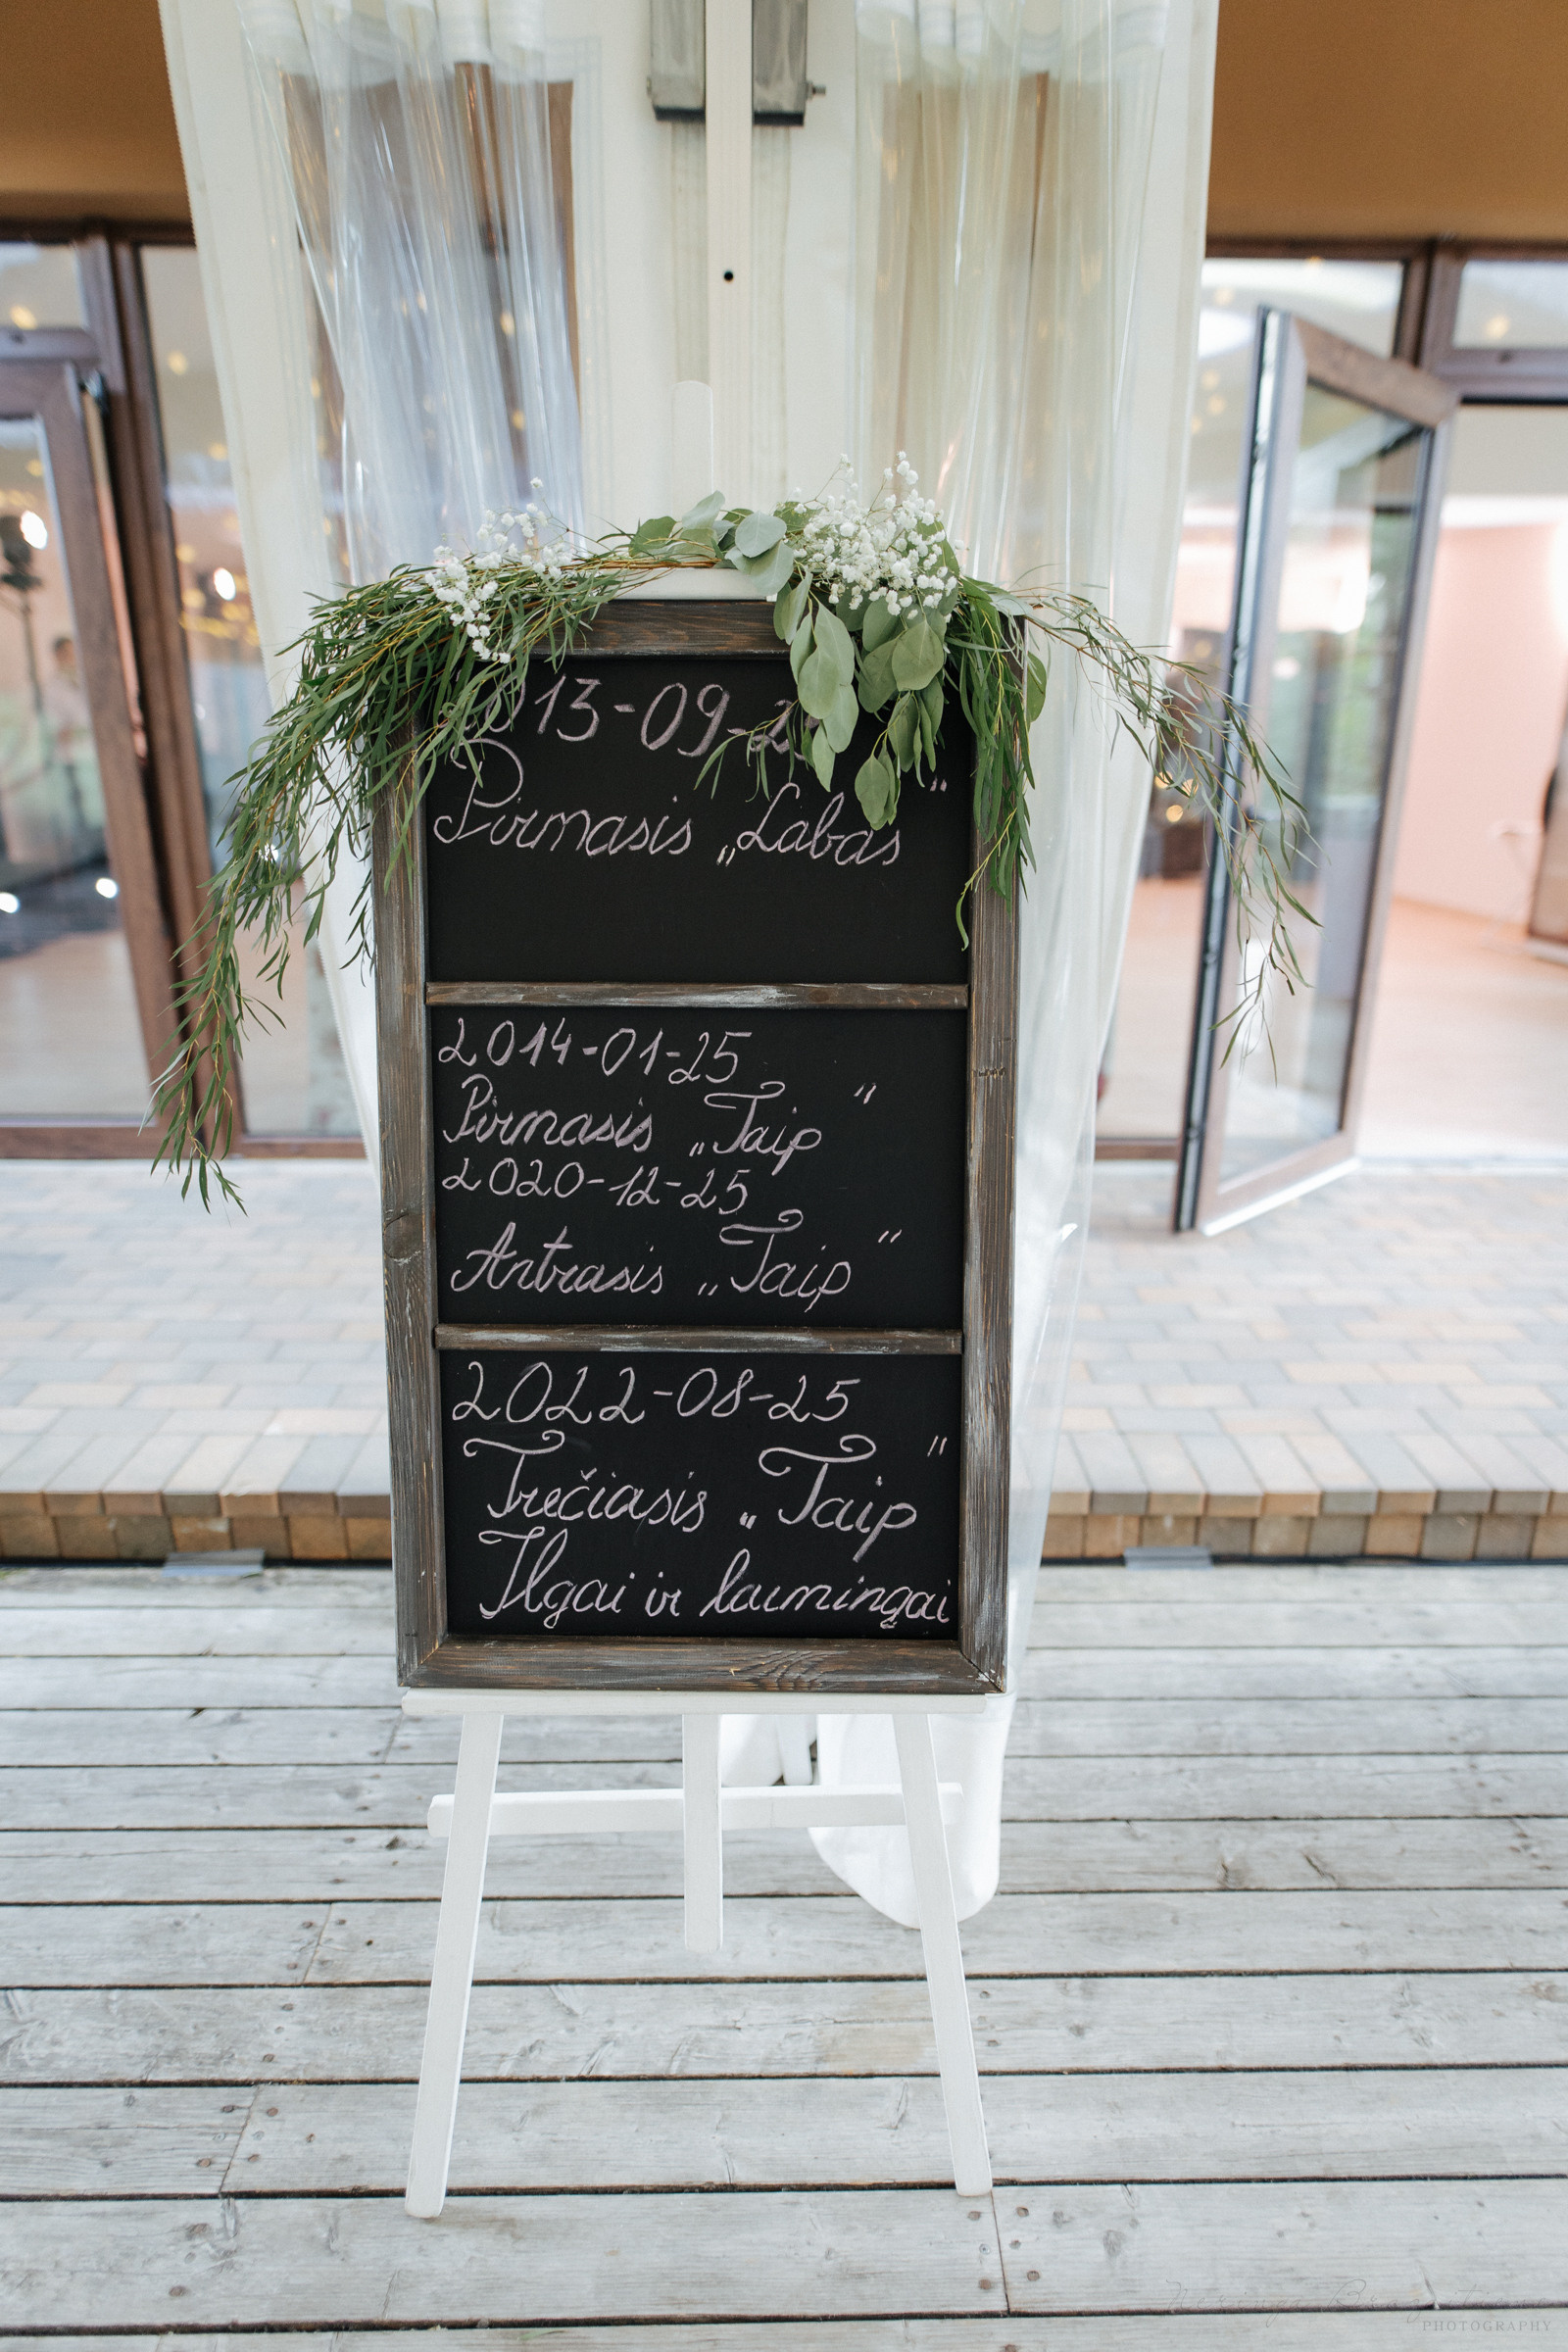 013-09-2
Pirmasis „Labas"
2014-01-25
Pirmasis „Taip"
2020-12-25
Antrasis „Taip"
2022-08-25
Trečiasis „Taip"
Ilgai ir laimingai
PHOTOGRAPHY